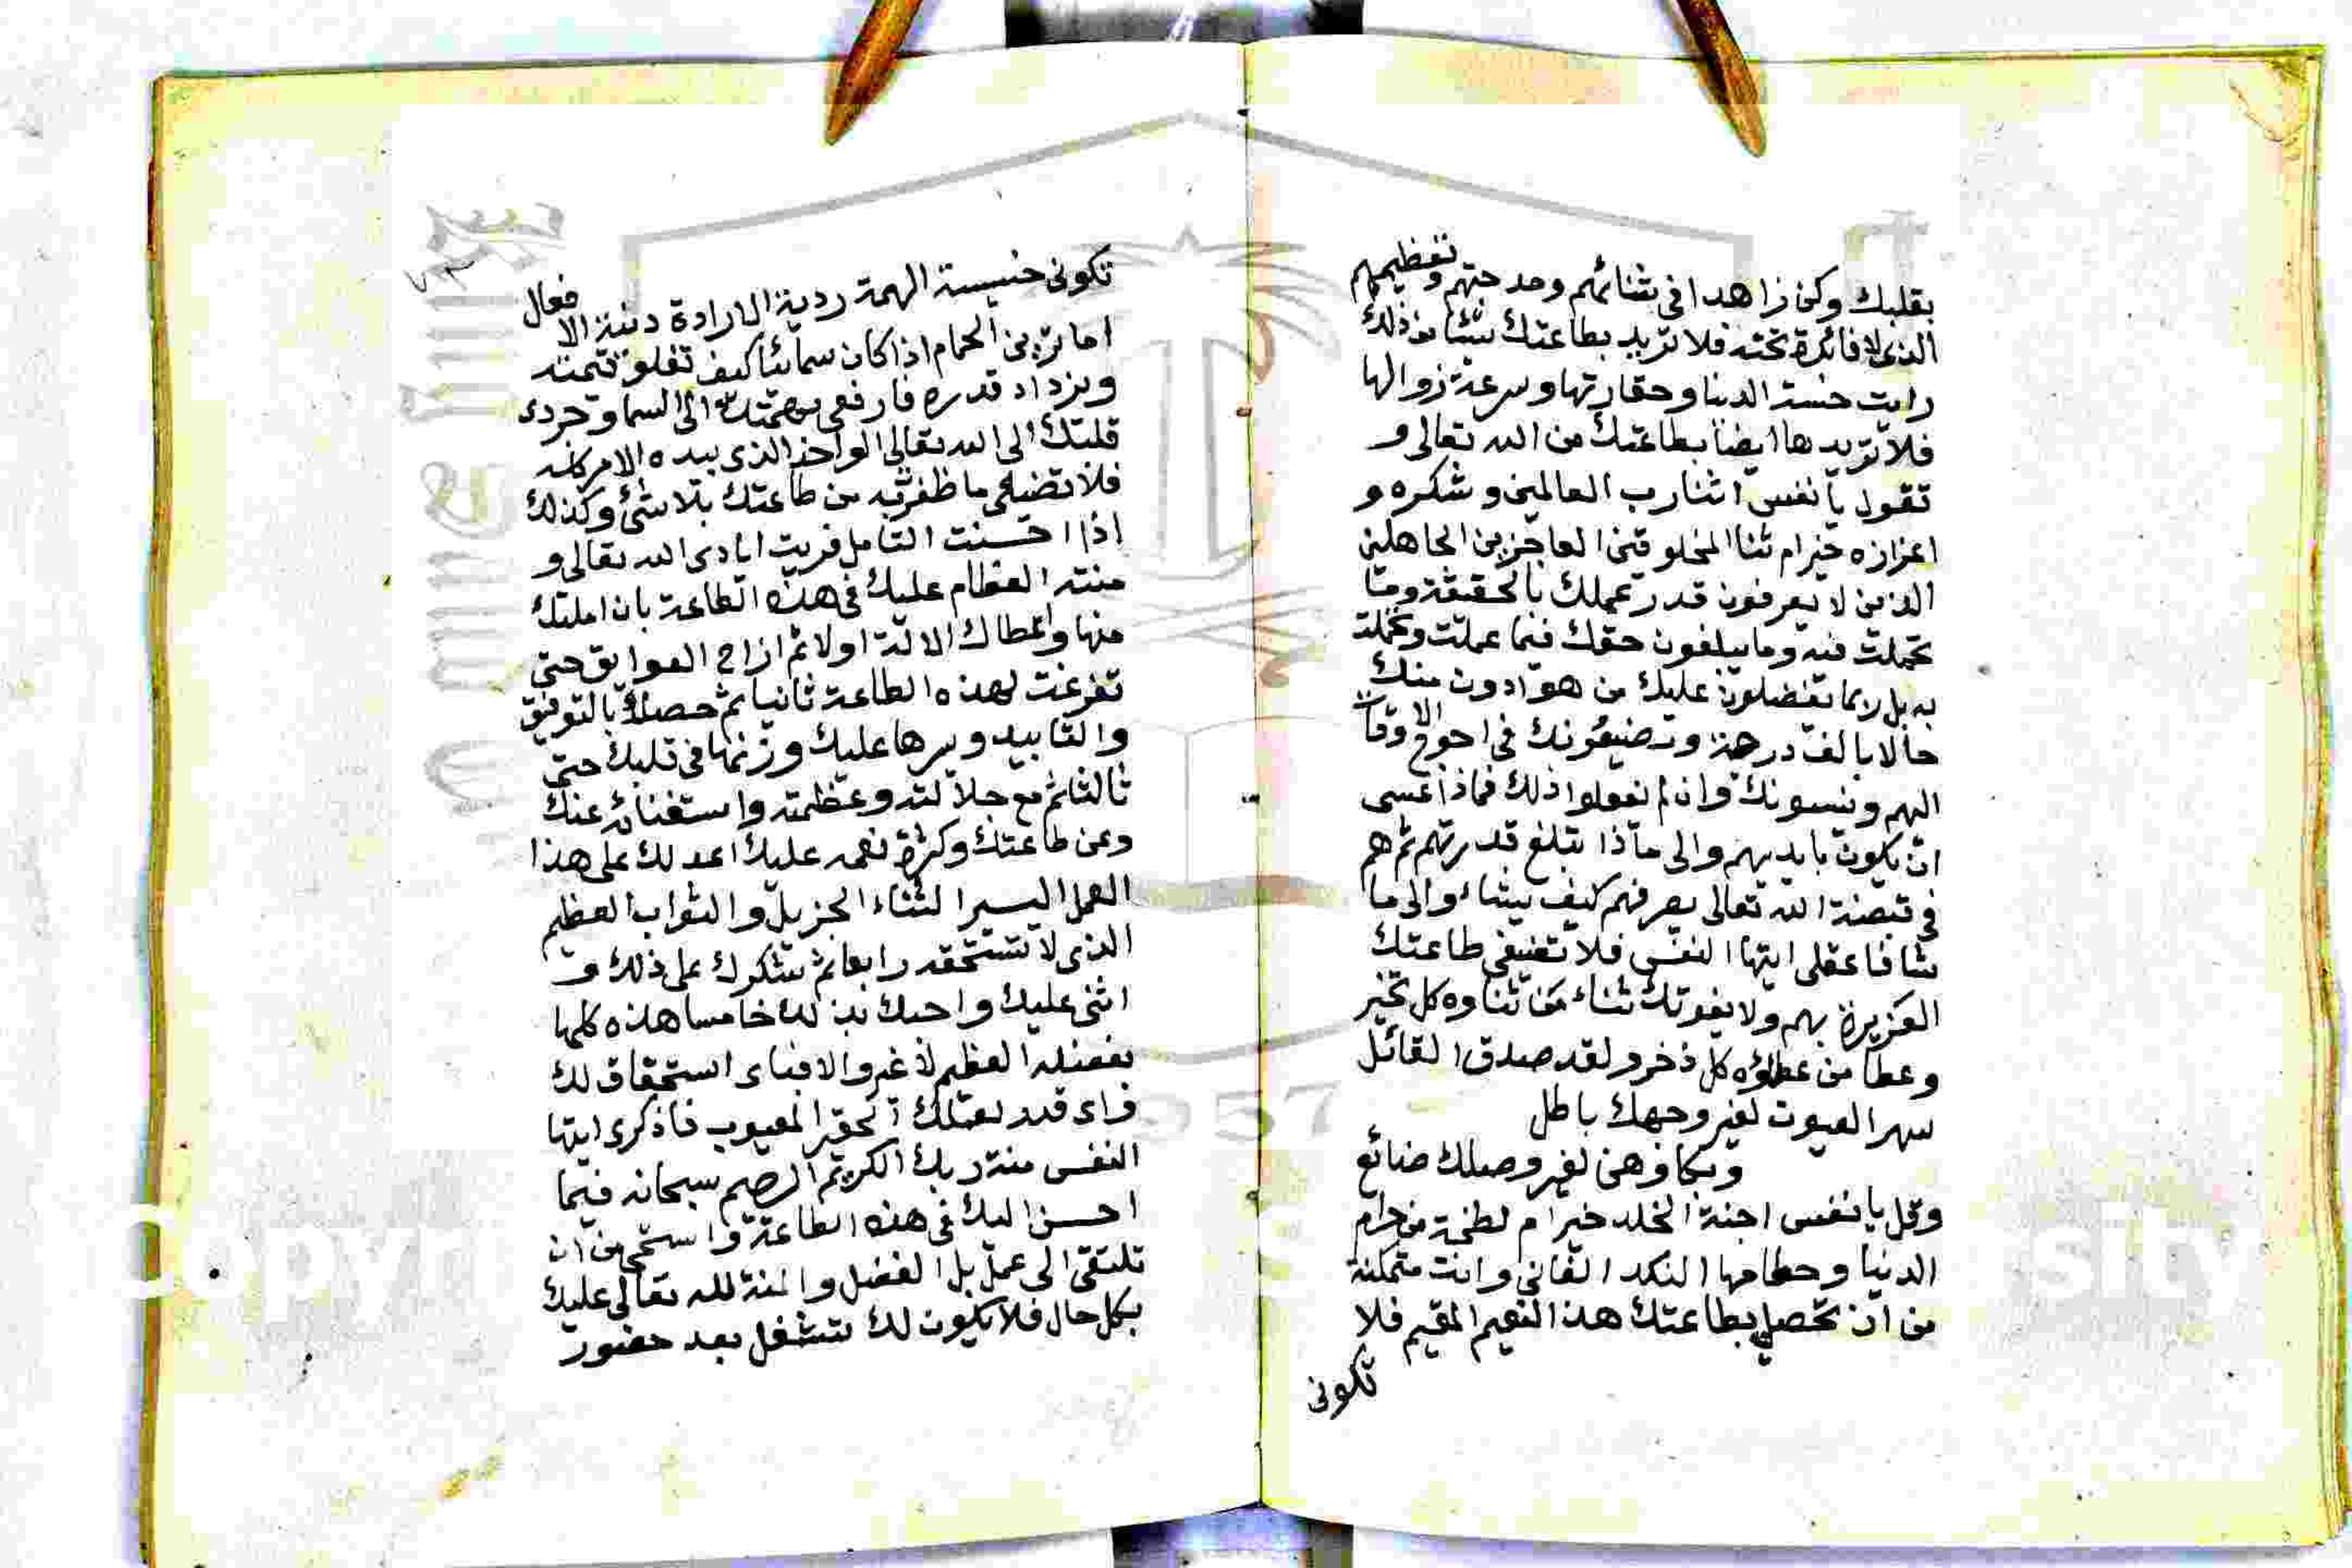 بقلبك وكن زاهدا فى ثنائهم ومدحتهم وتعظيمهم
الذى لا فائدة تحته فلا تريد بطاعتك شيئا من ذلك
رايت خسة الدنيا وحقارتها وسرعة زوالها
فلا تريدها ايضا بطاعتك من الله تعالى و
تقول يا نفس اثنا رب العالمين وشكره و
اعزازه خير ام ثنا المخلوقين العاجزين الجاهلين
الذين لا يعرفون قدر عملك بالحقيقة وما
تحملت فيه وما يبلغون حقك فيما عملت وتحملت
به بل ربما يفضلون عليك من هو ادون منك
حالا بالف درجة ويضيعونك فى احوج الاوقات
اليهم وينسونك وان لم يفعلوا ذلك فماذا عسى
ان يكون بايديهم والى ماذا تبلغ قدرتهم ثم هم
فى قبضة الله تعالى يصرفهم كيف يشاء والى ما
شا فاعقلى ايتها النفس فلا تضيعى طاعتك
العزيزة بهم ولا يفوتك ثناء من ثناوه كل فخر
وعطا من عطاؤه كل ذخر ولقد صدق القائل
سهر العيون لغير وجهك باطل
وبكاوهن لغير وصلك ضائع
وقل يا نفس اجنة الخلد خير ام لطخة من حرام
الدنيا وحطامها النكد الفانى وانت متمكنة
من ان تحصلى بطاعتك هذا النعيم المقيم فلا
تكونى
٧٣
تكونى خسيسة الهمة ردية الارادة دنية الافعال
اما ترين الحمام اذا كان سمائيا كيف تغلو قيمته
ويزداد قدره فارفعى همتك الى السما وجردى
قلبك الى الله تعالى الواحد الذى بيده الامر كله
فلا تضيعى ما ظفرت به من طاعتك بلا شئ وكذلك
اذا احسنت التامل فريت ايادى الله تعالى و
مننه العظام عليك فى هذه الطاعة بان املتك
منها واعطاك الالة اولا ثم ازاح العوايق حتى
تفرغت لهذه الطاعة ثانيا ثم حصلك بالتوفيق
والتاييد ويسرها عليك وزينها فى قلبك حتى
ثالثا ثم مع جلالته وعظمته واستغنائه عنك
وعن طاعتك وكثرة نعمه عليك اعد لك على هذا
العمل اليسير الثناء الجزيل والثواب العظيم
الذى لا تستحقه رابعا ثم شكرك على ذلك و
اثنى عليك واحبك بذلك خامسا هذه كلها
بفضله العظيم لا غير والا فباى استحقاق لك
واى قدر لعملك الحقير المعيوب فاذكرى ايتها
النفس منة ربك الكريم الرحيم سبحانه فيما
احسن اليك فى هذه الطاعة واستحى من ان
تلتفى الى عمل بل الفضل والمنة لله تعالى عليك
بكل حال فلا يكون لك شغل بعد حضور